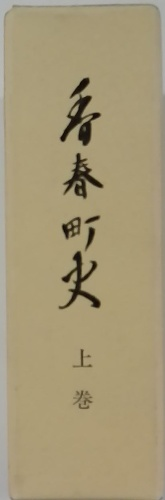 香春町史
上巻